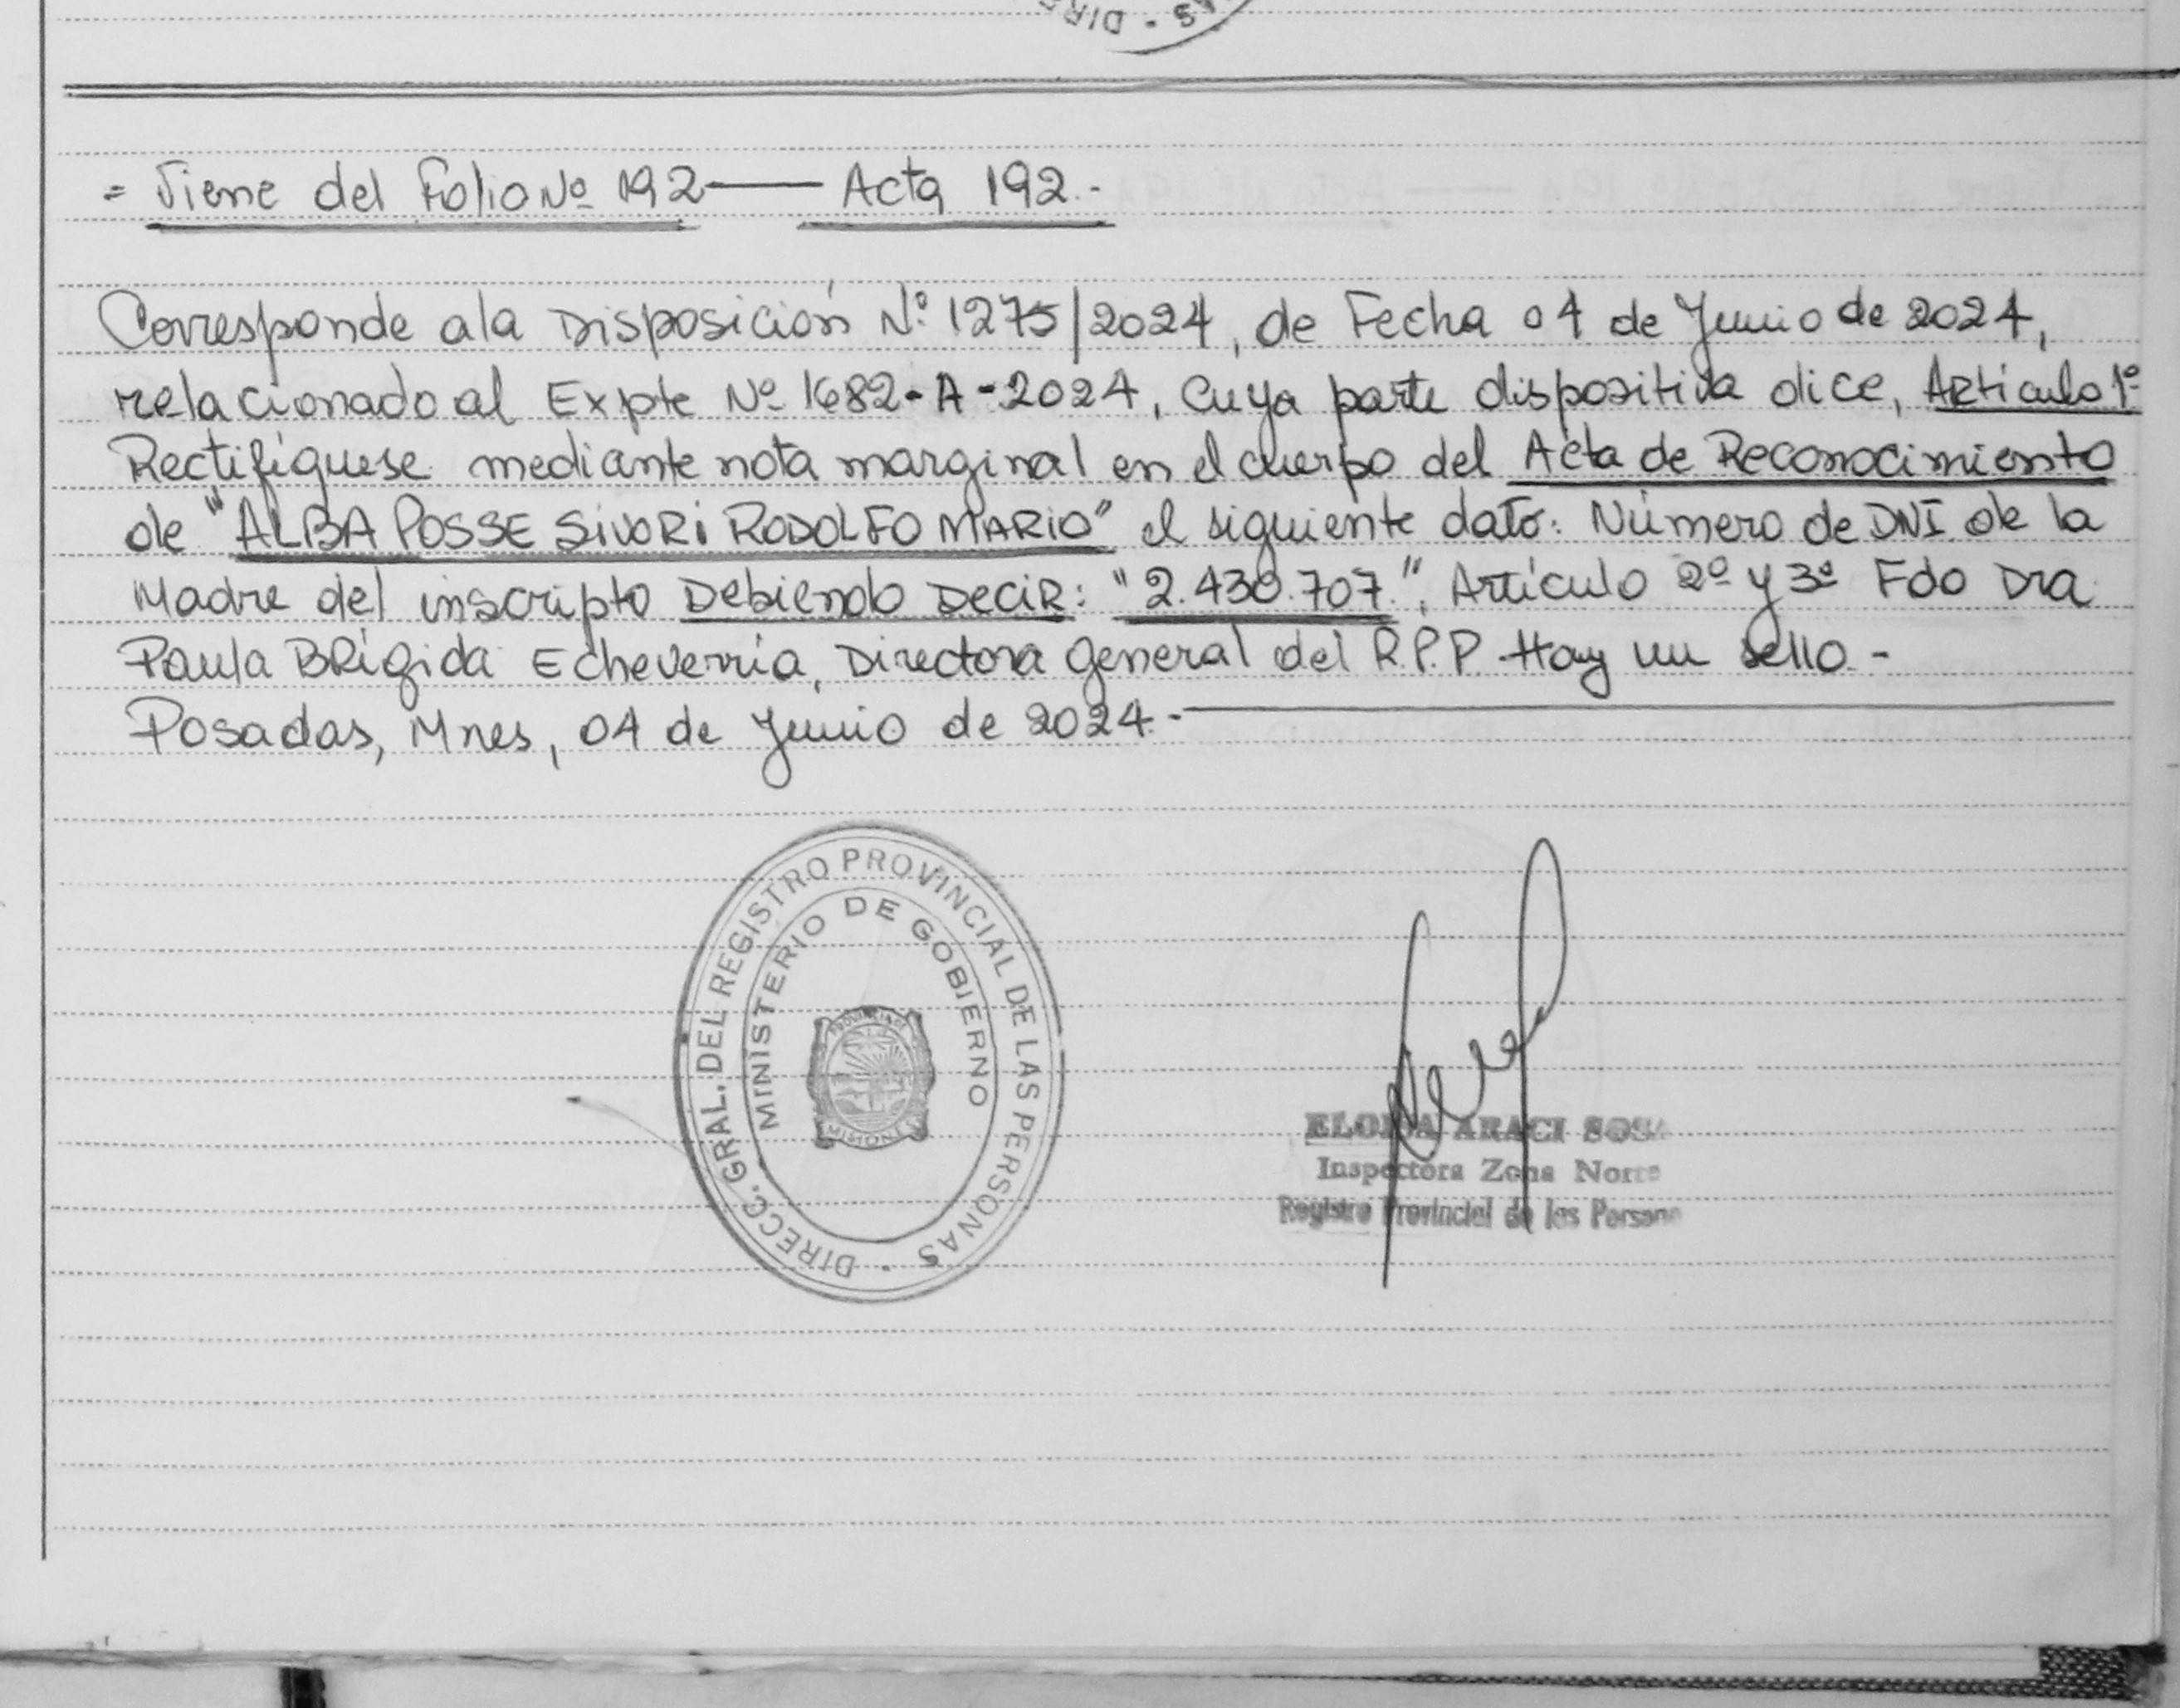 = Viene del Folio Nº 192 —— Acta 192.-
Corresponde a la Disposición Nº 1275/2024, de Fecha 04 de Junio de 2024,
relacionado al Expte Nº 1682-A-2024, cuya parte dispositiva dice, Artículo 1º
Rectifíquese mediante nota marginal en el cuerpo del Acta de Reconocimiento
de "ALBA POSSE SIVORI RODOLFO MARIO" el siguiente dato: Número de DNI de la
Madre del inscripto Debiendo Decir: "2.430.707.". Artículo 2º y 3º Fdo Dra
Paula Brígida Echeverría, Directora General del R.P.P. Hay un sello.-
Posadas, Mnes, 04 de Junio de 2024.-
DIRECC. GRAL. DEL REGISTRO PROVINCIAL DE LAS PERSONAS
MINISTERIO DE GOBIERNO
PROVINCIA DE
MISIONES
ARACI SOSA
Inspectora Zona Norte
Registro Provincial de las Persona